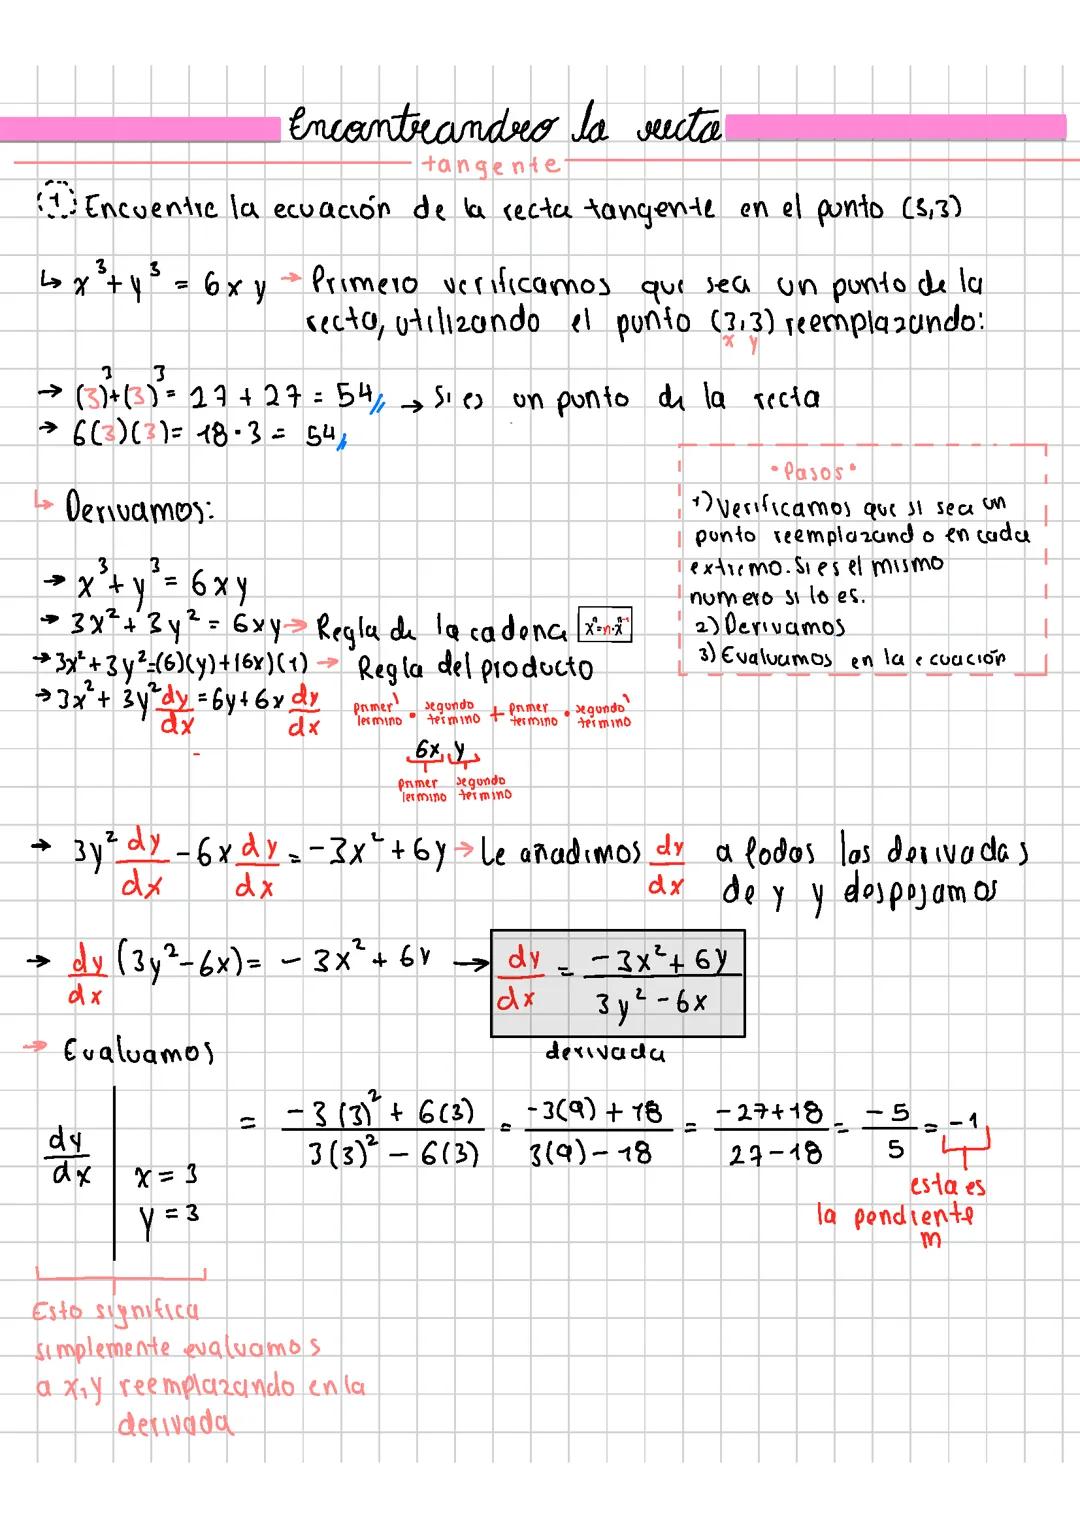 Encontrandro la recta
tangente
1 Encuentre la ecuación de la recta tangente en el punto (3,3)
↳ x³+y³ = 6xy → Primero verificamos que sea un punto de la
recta, utilizando el punto (3,3) reemplazando:
x y
→ (3)³+(3)³= 27+27 = 54 → Si es un punto de la recta
→ 6(3)(3)= 18·3 = 54
• Pasos •
1) Verificamos que si sea un
punto reemplazando en cada
extremo. Si es el mismo
numero si lo es.
2) Derivamos
3) Evaluamos en la ecuación
↳ Derivamos:
→ x³+y³= 6xy
→ 3x²+3y² = 6xy → Regla de la cadena xⁿ=n·xⁿ⁻¹
→ 3x²+3y²=(6)(y)+(6x)(1) → Regla del producto
→ 3x²+ 3y² dy/dx = 6y+6x dy/dx
primer' termino • segundo termino + primer termino • segundo' termino
6x y
primer termino segundo termino
→ 3y² dy/dx -6x dy/dx = -3x²+6y → Le añadimos dy/dx a todas las derivadas
de y y despejamos
→ dy/dx (3y²-6x)= -3x²+6y → dy/dx = -3x²+6y / 3y²-6x
derivada
→ Evaluamos
dy/dx | x=3 y=3 = -3(3)²+6(3) / 3(3)²-6(3) = -3(9)+18 / 3(9)-18 = -27+18 / 27-18 = -5/5 = -1
esta es
la pendiente
m
Esto significa
simplemente evaluamos
a x,y reemplazando en la
derivada